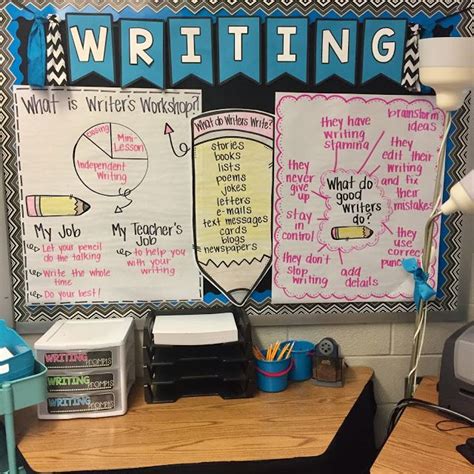 WRITING
What is Writer's Workshop?
Closing
Mini-
Lesson
Independent
Writing
My Job
Let your pencil
do the talking
Write the whole
time
Do your best!
My Teacher's
Job
to help you
with your
writing
What do Writers Write?
stories
books
lists
poems
jokes
letters
e-mails
text messages
cards
blogs
newspapers
What do
good
writers
do?
they have
writing
stamina
brainstorm
ideas
they edit their
writing
and fix
their
mistakes
they
use
correct
add
details
they don't
stop
writing
stay
in
control
they
never
give
up
WRITING PROMPTS
WRITING PROMPTS
WRITING PROMPTS